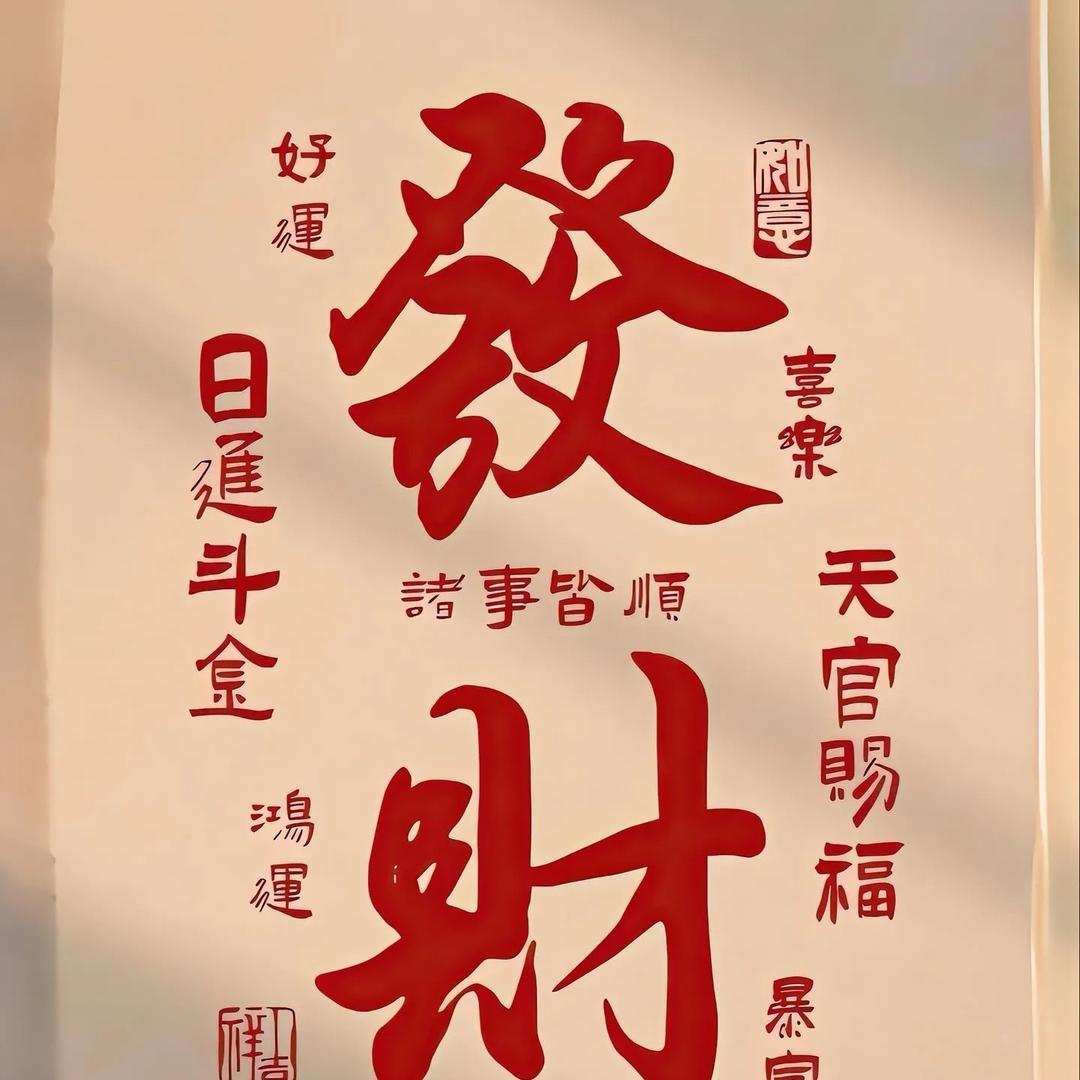 發
財
諸事皆順
如意
喜樂
天官賜福
暴富
好運
日進斗金
鴻運
吉祥